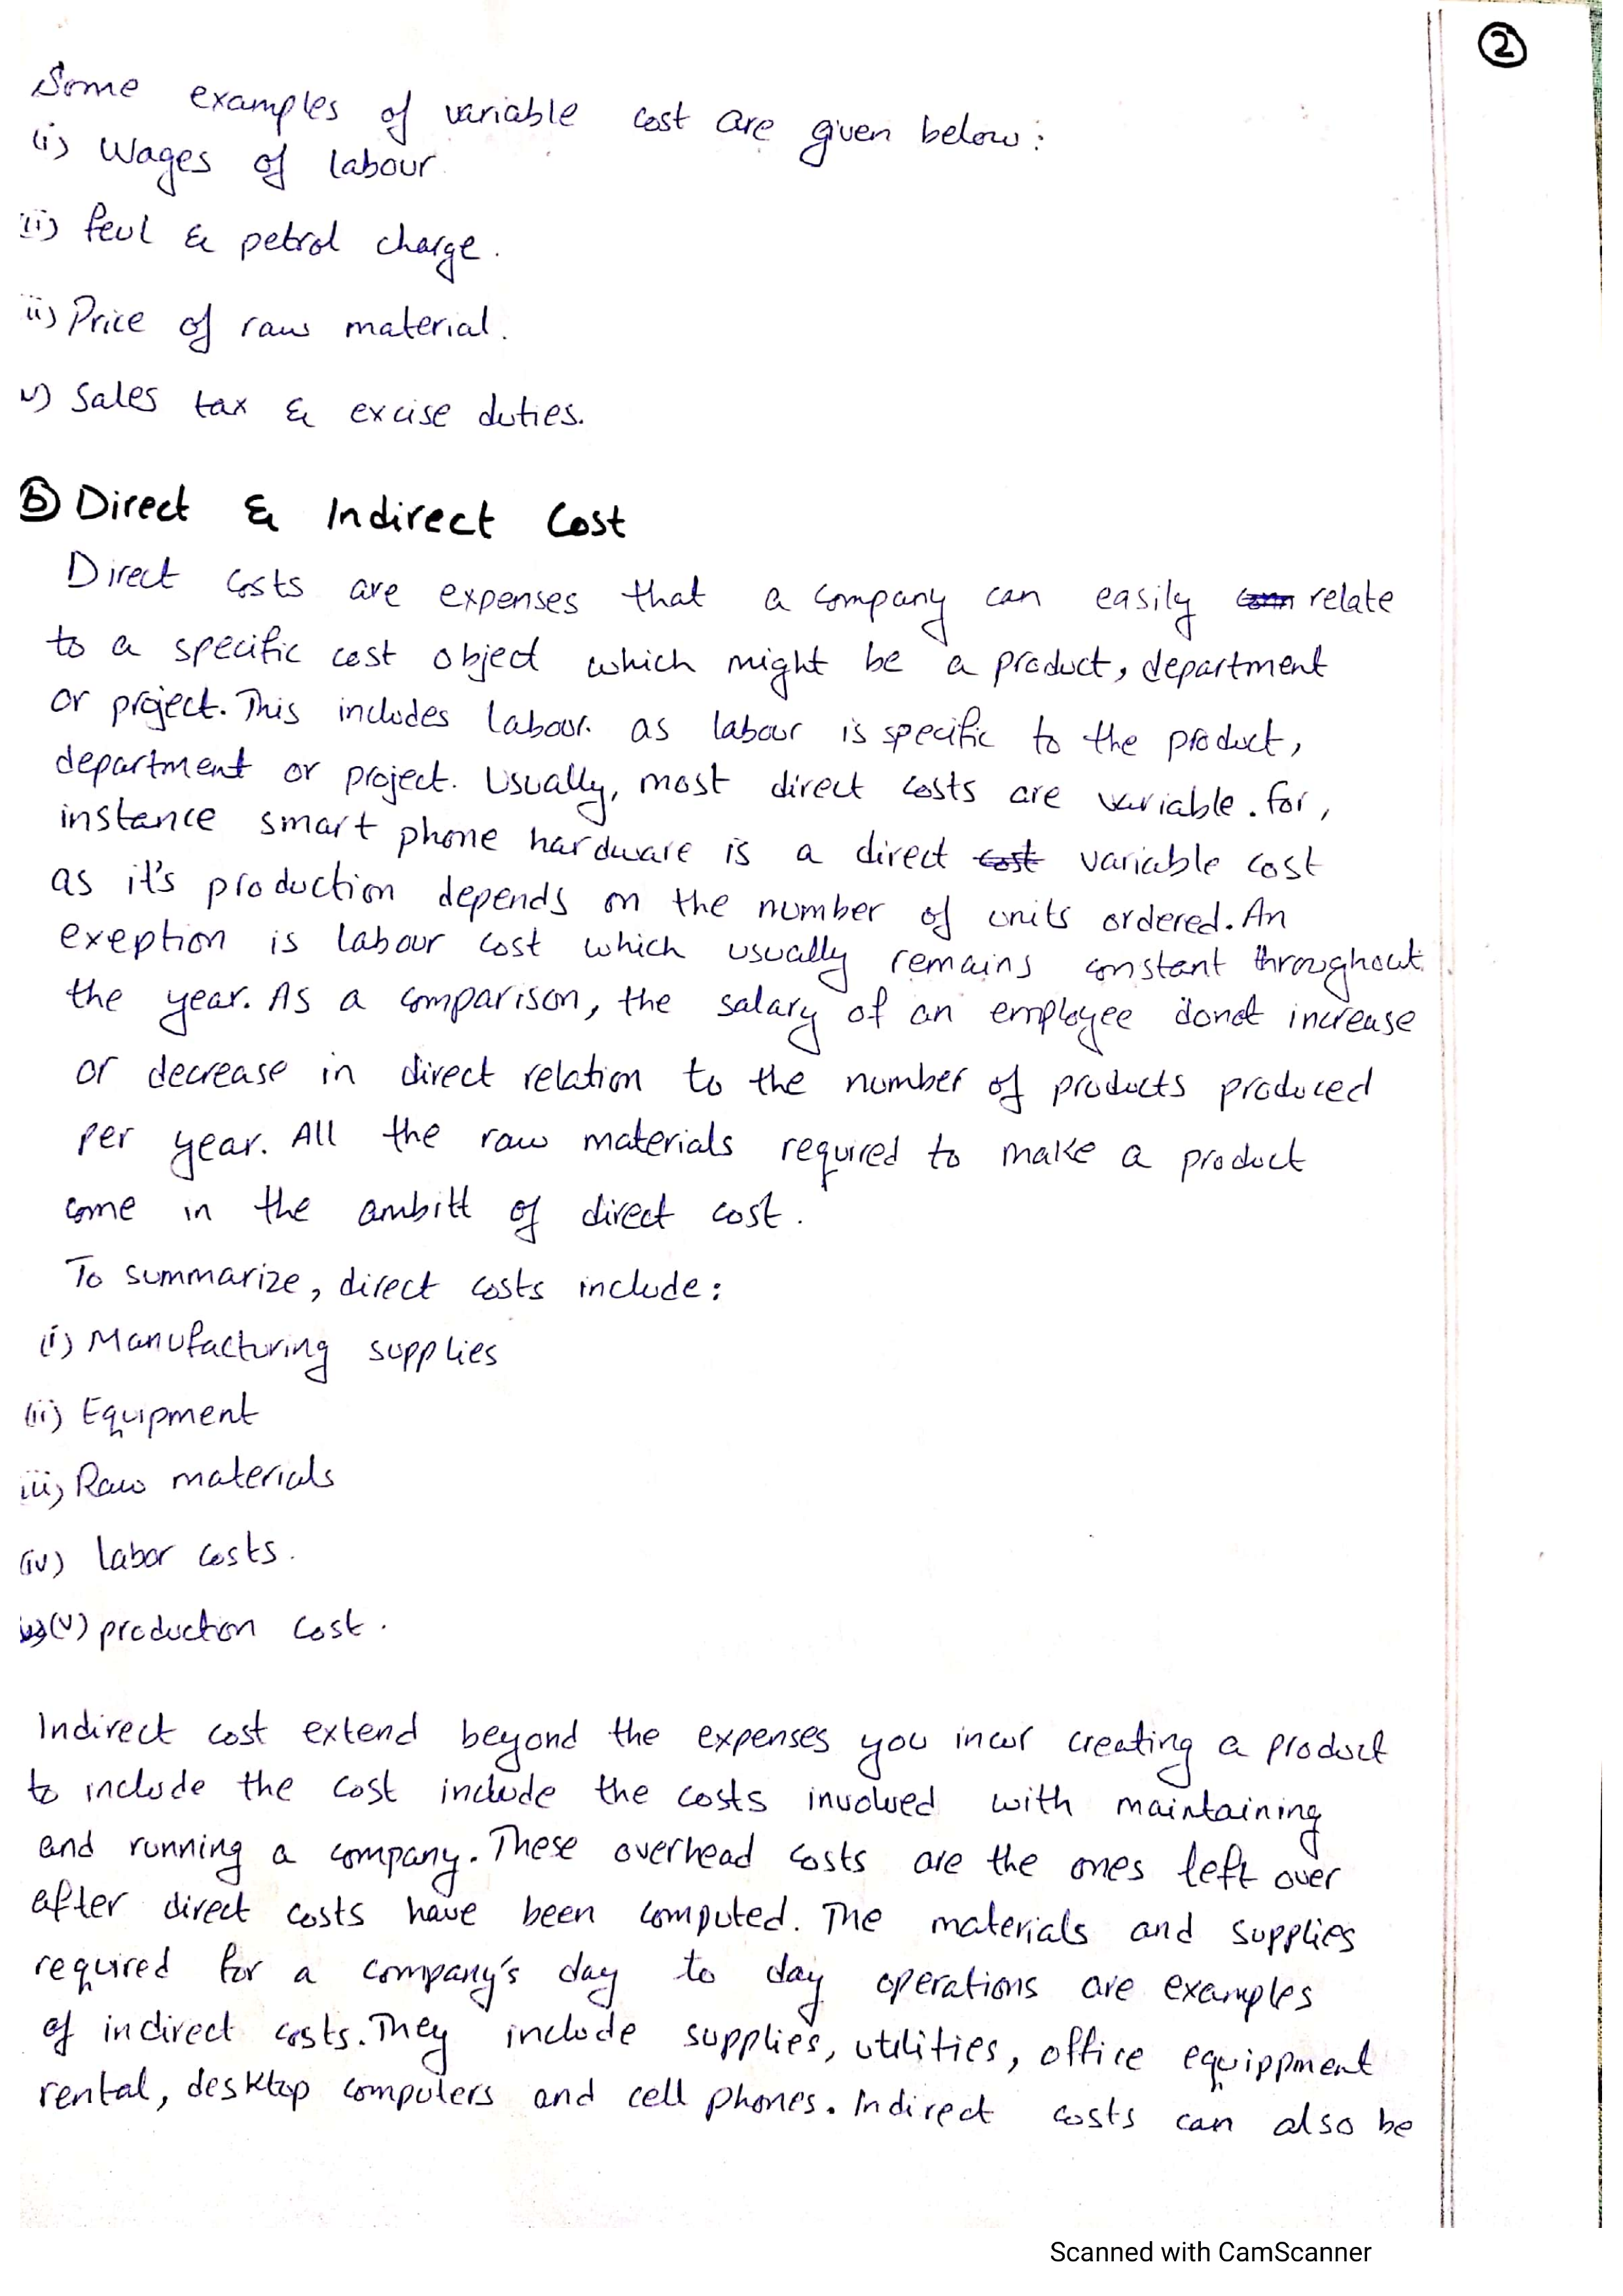 2
Some examples of variable cost are given below:
(i) Wages of labour
(ii) feul & petrol charge.
iii) Price of raw material.
v) Sales tax & excise duties.
b Direct & Indirect Cost
Direct costs are expenses that a company can easily relate
to a specific cost object which might be a product, department
or project. This includes labour. as labour is specific to the product,
department or project. Usually, most direct costs are variable. for,
instance smart phone hardware is a direct cost variable cost
as it's production depends on the number of units ordered. An
exeption is labour cost which usually remains constant throughout
the year. As a comparison, the salary of an employee donot increase
or decrease in direct relation to the number of products produced
per year. All the raw materials required to make a product
come in the ambitt of direct cost.
To summarize, direct costs include:
(i) Manufacturing supplies
(ii) Equipment
iii) Raw materials
(iv) labor costs.
(v) production cost.
Indirect cost extend beyond the expenses you incur creating a product
to include the cost include the costs involved with maintaining
and running a company. These overhead costs are the ones left over
after direct costs have been computed. The materials and supplies
required for a company's day to day operations are examples
of indirect costs. They include supplies, utilities, office equippment
rental, desktop computers and cell phones. Indirect costs can also be
Scanned with CamScanner